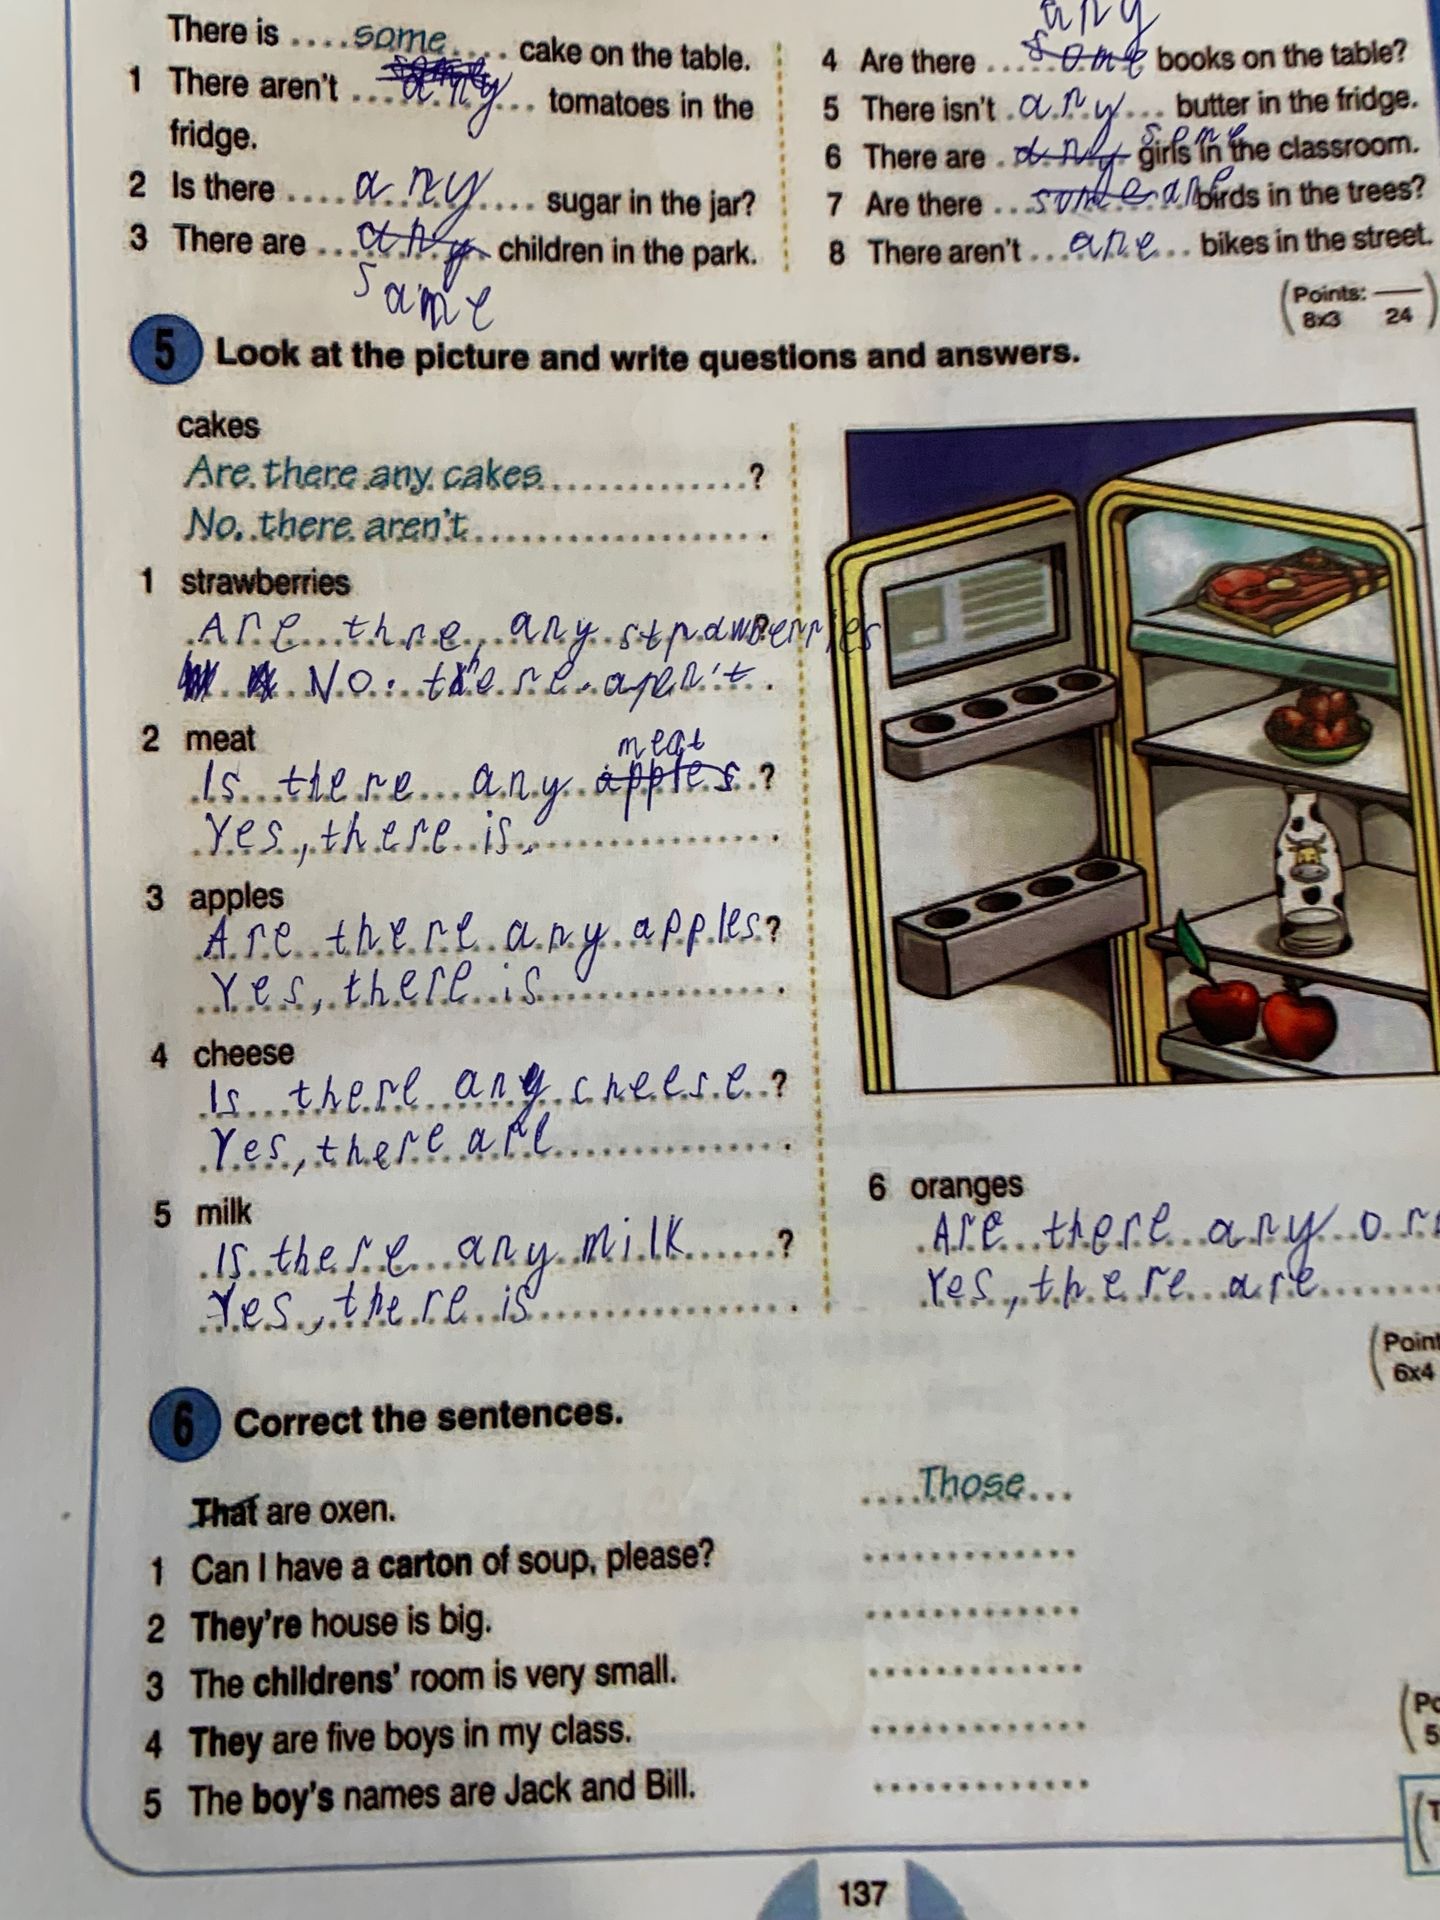 There is ....some.... cake on the table.
1 There aren't .... any ... tomatoes in the
fridge.
2 Is there .... any .... sugar in the jar?
3 There are ... any children in the park.
same
any
4 Are there ... some books on the table?
5 There isn't .any... butter in the fridge.
some
6 There are . any girls in the classroom.
7 Are there ... some birds in the trees?
8 There aren't ... ane ... bikes in the street.
(Points: ___
8x3 24)
5 Look at the picture and write questions and answers.
cakes
Are there any cakes...............?
No, there aren't....................
1 strawberries
Are thre, any strawberries?
No. there. aren't.
2 meat
meat
Is there any apples?
Yes, there is.
3 apples
Are there any apples?
Yes, there is.
4 cheese
Is there any cheese?
Yes, there are.
5 milk
Is there any milk......?
Yes, there is.
6 oranges
Are there any or
Yes, there are
(Point
6x4
6 Correct the sentences.
That are oxen. ....Those...
1 Can I have a carton of soup, please? .............
2 They're house is big. .............
3 The childrens' room is very small. .............
4 They are five boys in my class. .............
5 The boy's names are Jack and Bill. .............
(Po
5
(T
137